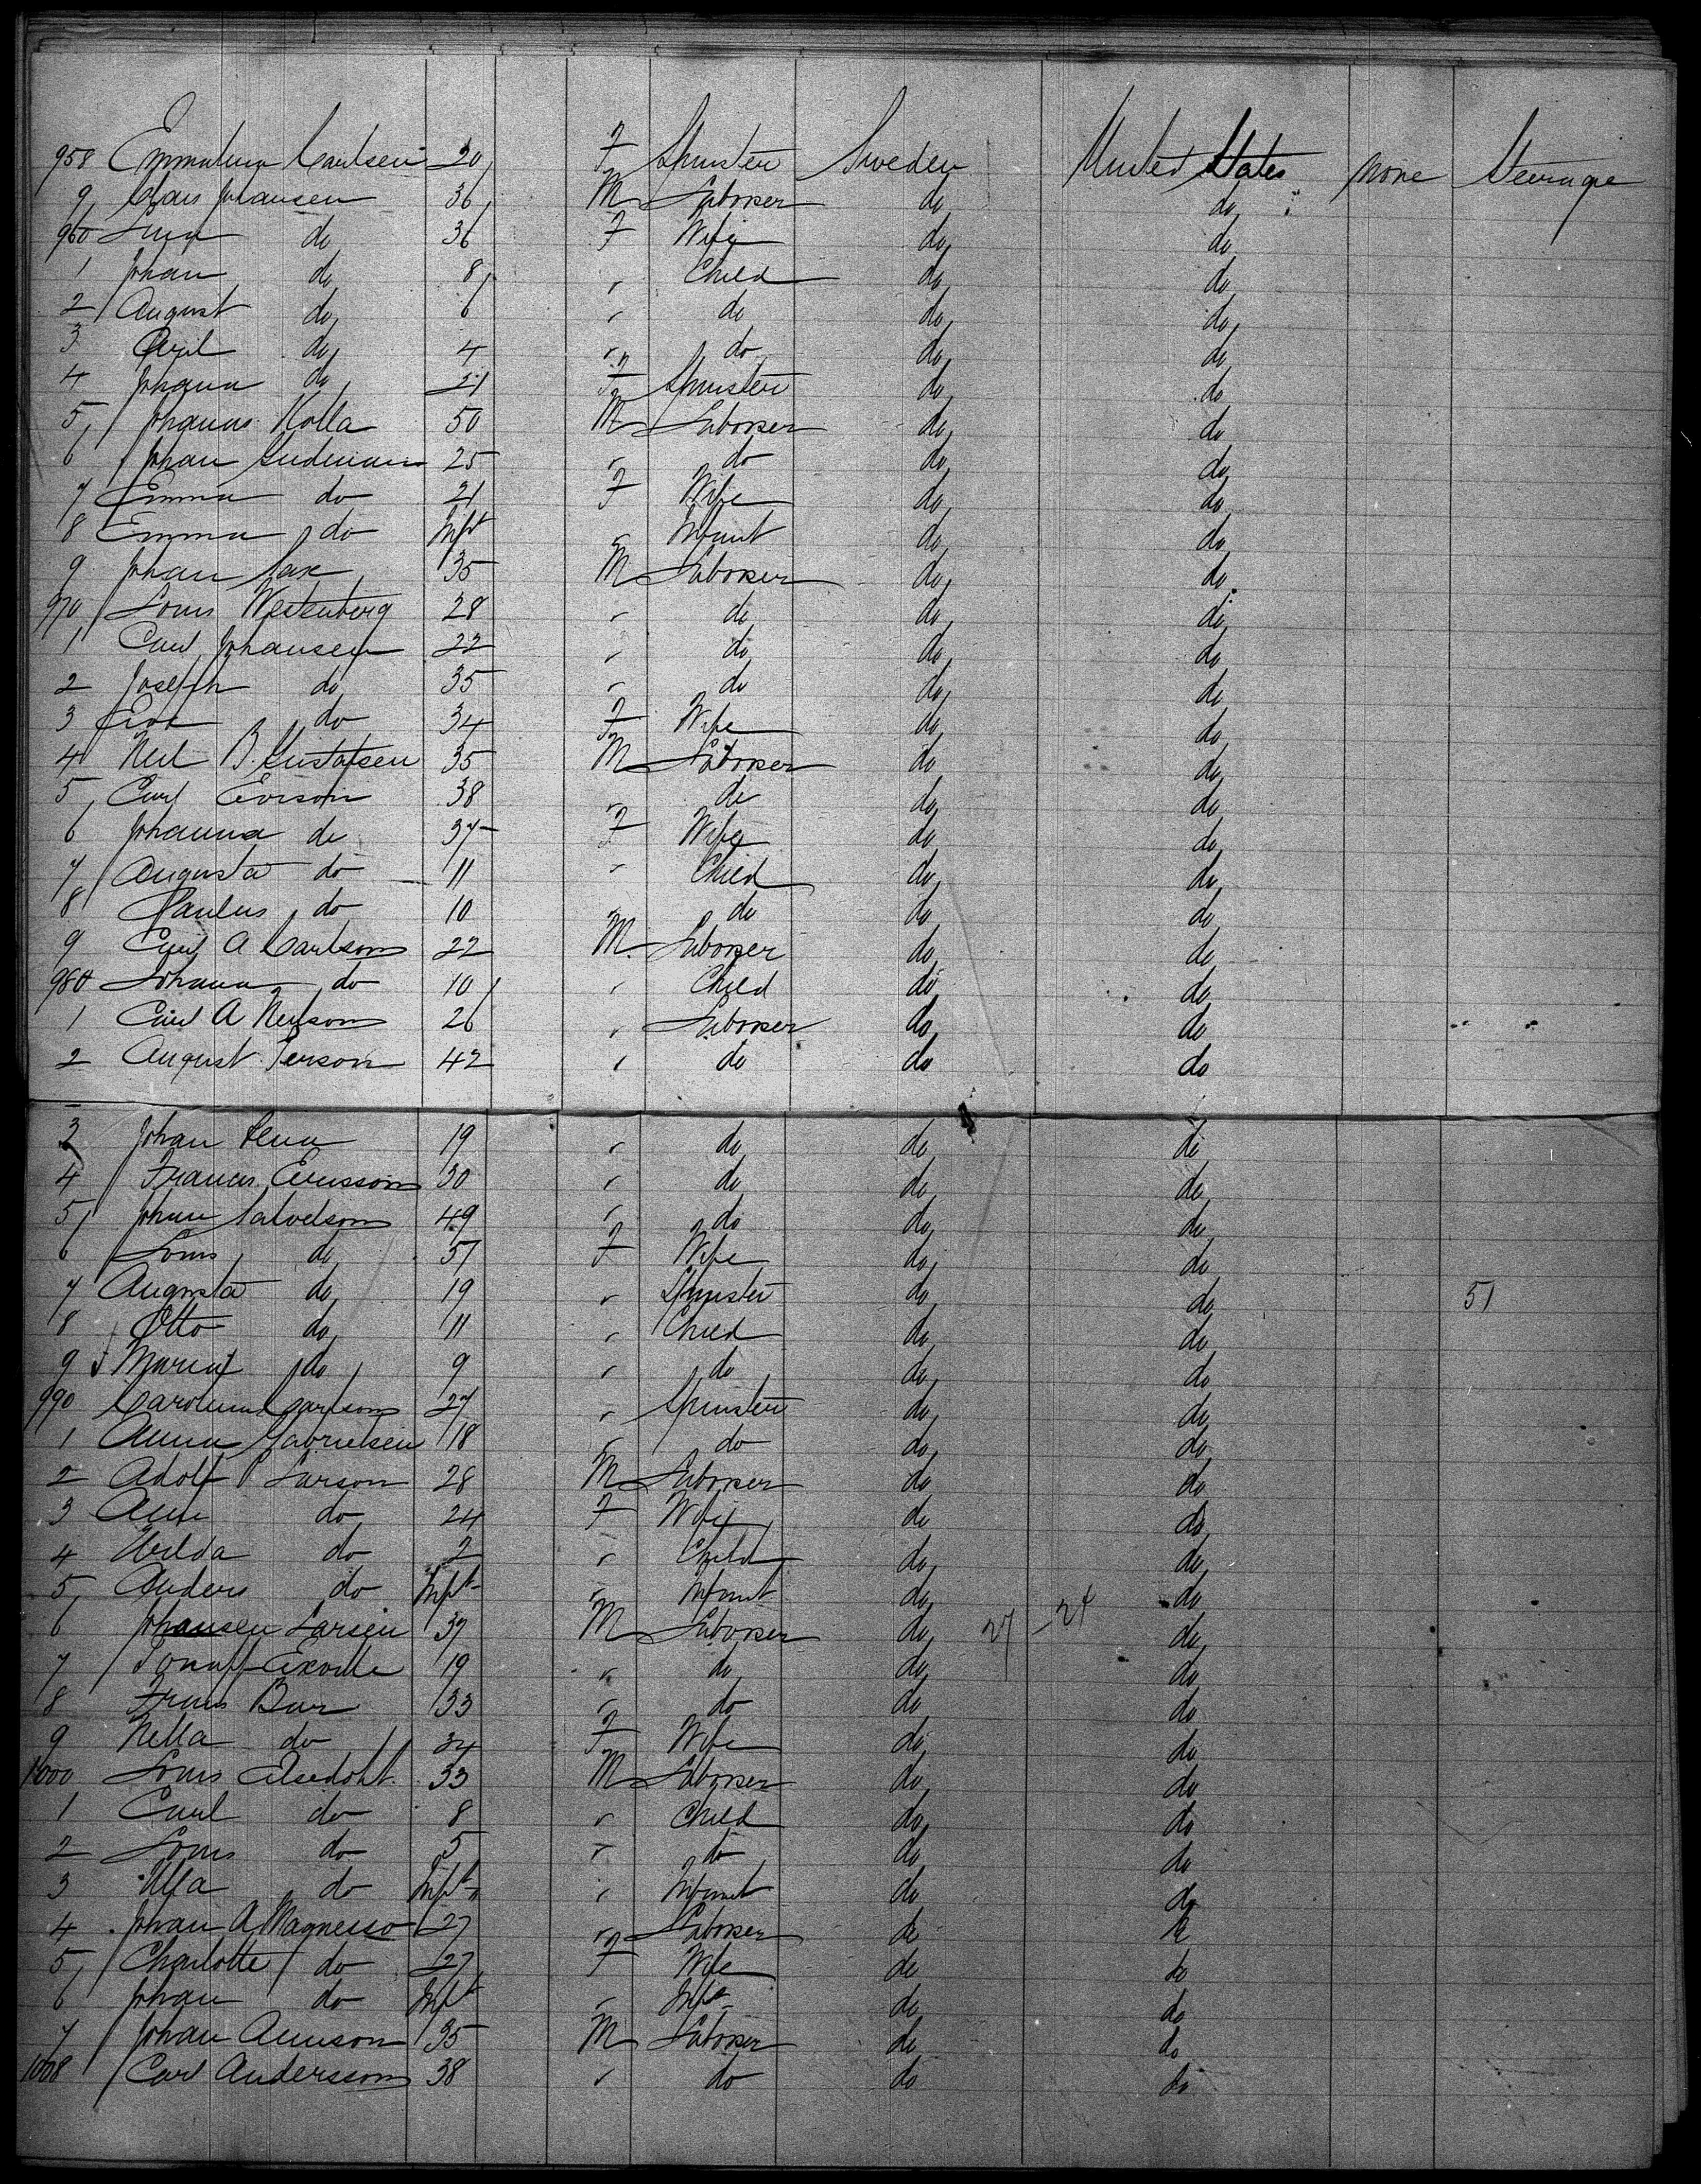 958 Emmalina Carlsen 20 F Spinster Sweden United States none Steerage
9 Claus Johansen 36 M Laborer do do
960 Lina do 36 F Wife do do
1 Johan do 8 " Child do do
2 August do 6 " do do do
3 do 4 " do do do
4 Johana do 21 F Spinster do do
5 Johanas Kolla 50 M Laborer do do
6 Johan 25 " do do do
7 Emma do 21 F Wife do do
8 Emma do Inft " Infant do do
9 Johan Saxe 35 M Laborer do do
970 Louis Westenberg 28 " do do do
1 Carl Johansen 22 " do do do
2 Joseph do 35 " do do do
3 Eva do 34 F Wife do do
4 Neil B. Gustafsen 35 M Laborer do do
5 Carl Evrson 38 " do do do
6 Johanna do 37 F Wife do do
7 Augusta do 11 " Child do do
8 Paulus do 10 " do do do
9 Carl A Carlson 22 M. Laborer do do
980 Johana do 10 " Child do do
1 Carl A Nelson 26 " Laborer do do
2 August Person 42 " do do do
3 Johan 19 " do do do
4 Francis Ericsson 30 " do do do
5 Johan Salvelson 49 " do do do
6 Louis do 51 F Wife do do
7 Augusta do 19 " Spinster do do 51
8 Otto do 11 " Child do do
9 Maria do 9 " do do do
990 Carolina Carlson 27 " Spinster do do
1 Anna Gabrielsen 18 " do do do
2 Adolf P Larson 28 M Laborer do do
3 do 24 F Wife do do
4 Hilda do 2 " Child do do
5 Anders do Inft " Infant do do
6 Johansen Larsen 37 M Laborer do 27 - 24 do
7 19 " do do do
8 Frans Bur 33 " do do do
9 Nella do 34 F Wife do do
1000 Louis 33 M Laborer do do
1 Carl do 8 " Child do do
2 Louis do 5 " do do do
3 Ulfa do Inft " Infant do do
4 Johan A Magnesso 27 " Laborer do do
5 Charlotte do 27 F Wife do do
6 Johan do Inft " Inft do do
7 Johan Annson 35 M Laborer do do
1008 Carl Andersson 38 " do do do